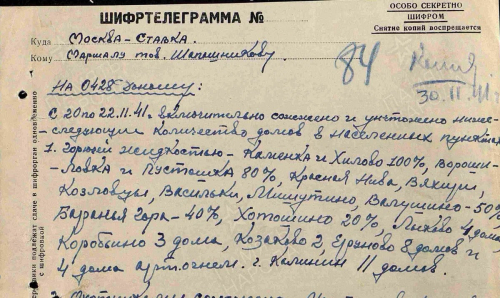 ОСОБО СЕКРЕТНО
ШИФРОМ
Снятие копий воспрещается
ШИФРТЕЛЕГРАММА №
Куда Москва – Ставка.
Кому Маршалу тов. Шапошникову.
84
Копия
30.11.41 г
На 0428 доношу:
С 20 по 22.11.41 г. включительно сожжено и уничтожено ниже-
следующее количество домов в населенных пунктах
1. Горючей жидкостью – Каменка и Хилово 100%, Вороши-
ловка и Пустошка 80%, Красная Нива, Вяхири,
Козловцы, Васильки, Мишутино, Ватушино – 50%
Баранья Гора – 40%, Хотошино 20%, Лыково 4 дома,
Коробьино 3 дома, Козаково 2, 8 домов и
4 дома артогнем. г. Калинин 11 домов.
подлежат сдаче в шифроргане одновременно
с шифровкой